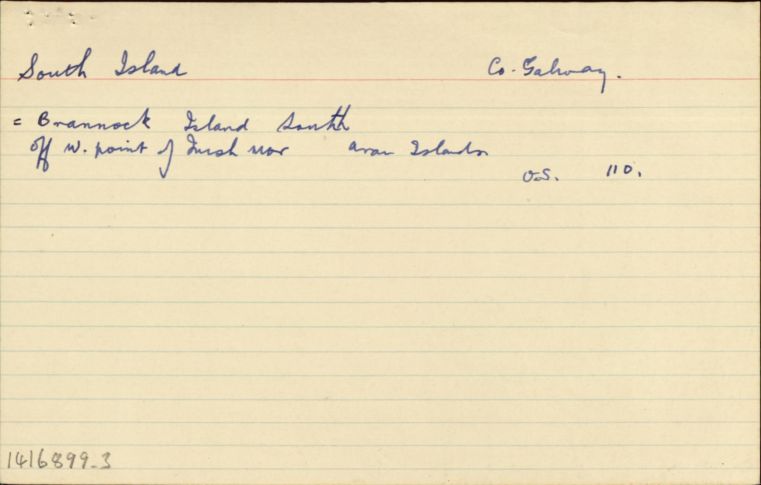 South Island Co. Galway.
= Brannock Island South
off W. point of Inishmor Aran Islands
O.S. 110.
1416899-3